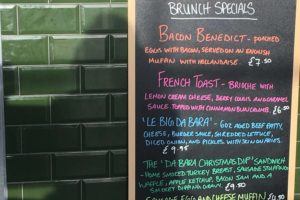 BRUNCH SPECIALS
BACON BENEDICT - POACHED
EGGS WITH BACON, SERVED ON AN ENGLISH
MUFFIN WITH HOLLANDAISE. £7.50
FRENCH TOAST - BRIOCHE WITH
LEMON CREAM CHEESE, BERRY COULIS AND CARAMEL
SAUCE. TOPPED WITH CINNAMON BUNCRUMBS. £6.50
'LE BIG DA BARA' - 6OZ AGED BEEF PATTY,
CHEESE, BURGER SAUCE, SHREDDED LETTUCE,
DICED ONION, AND PICKLES. WITH SKIN ON FRIES.
£9.95
THE 'DA BARA CHRISTMAS DIP' SANDWICH
- HOME SMOKED TURKEY BREAST, SAUSAGE STUFFING
WAFFLE, APPLE KETCHUP, BACON JAM AND A
SMOKEY DIPPIN GRAVY. £9.50
SAUSAGE EGG AND CHEESE MUFFIN £4.50